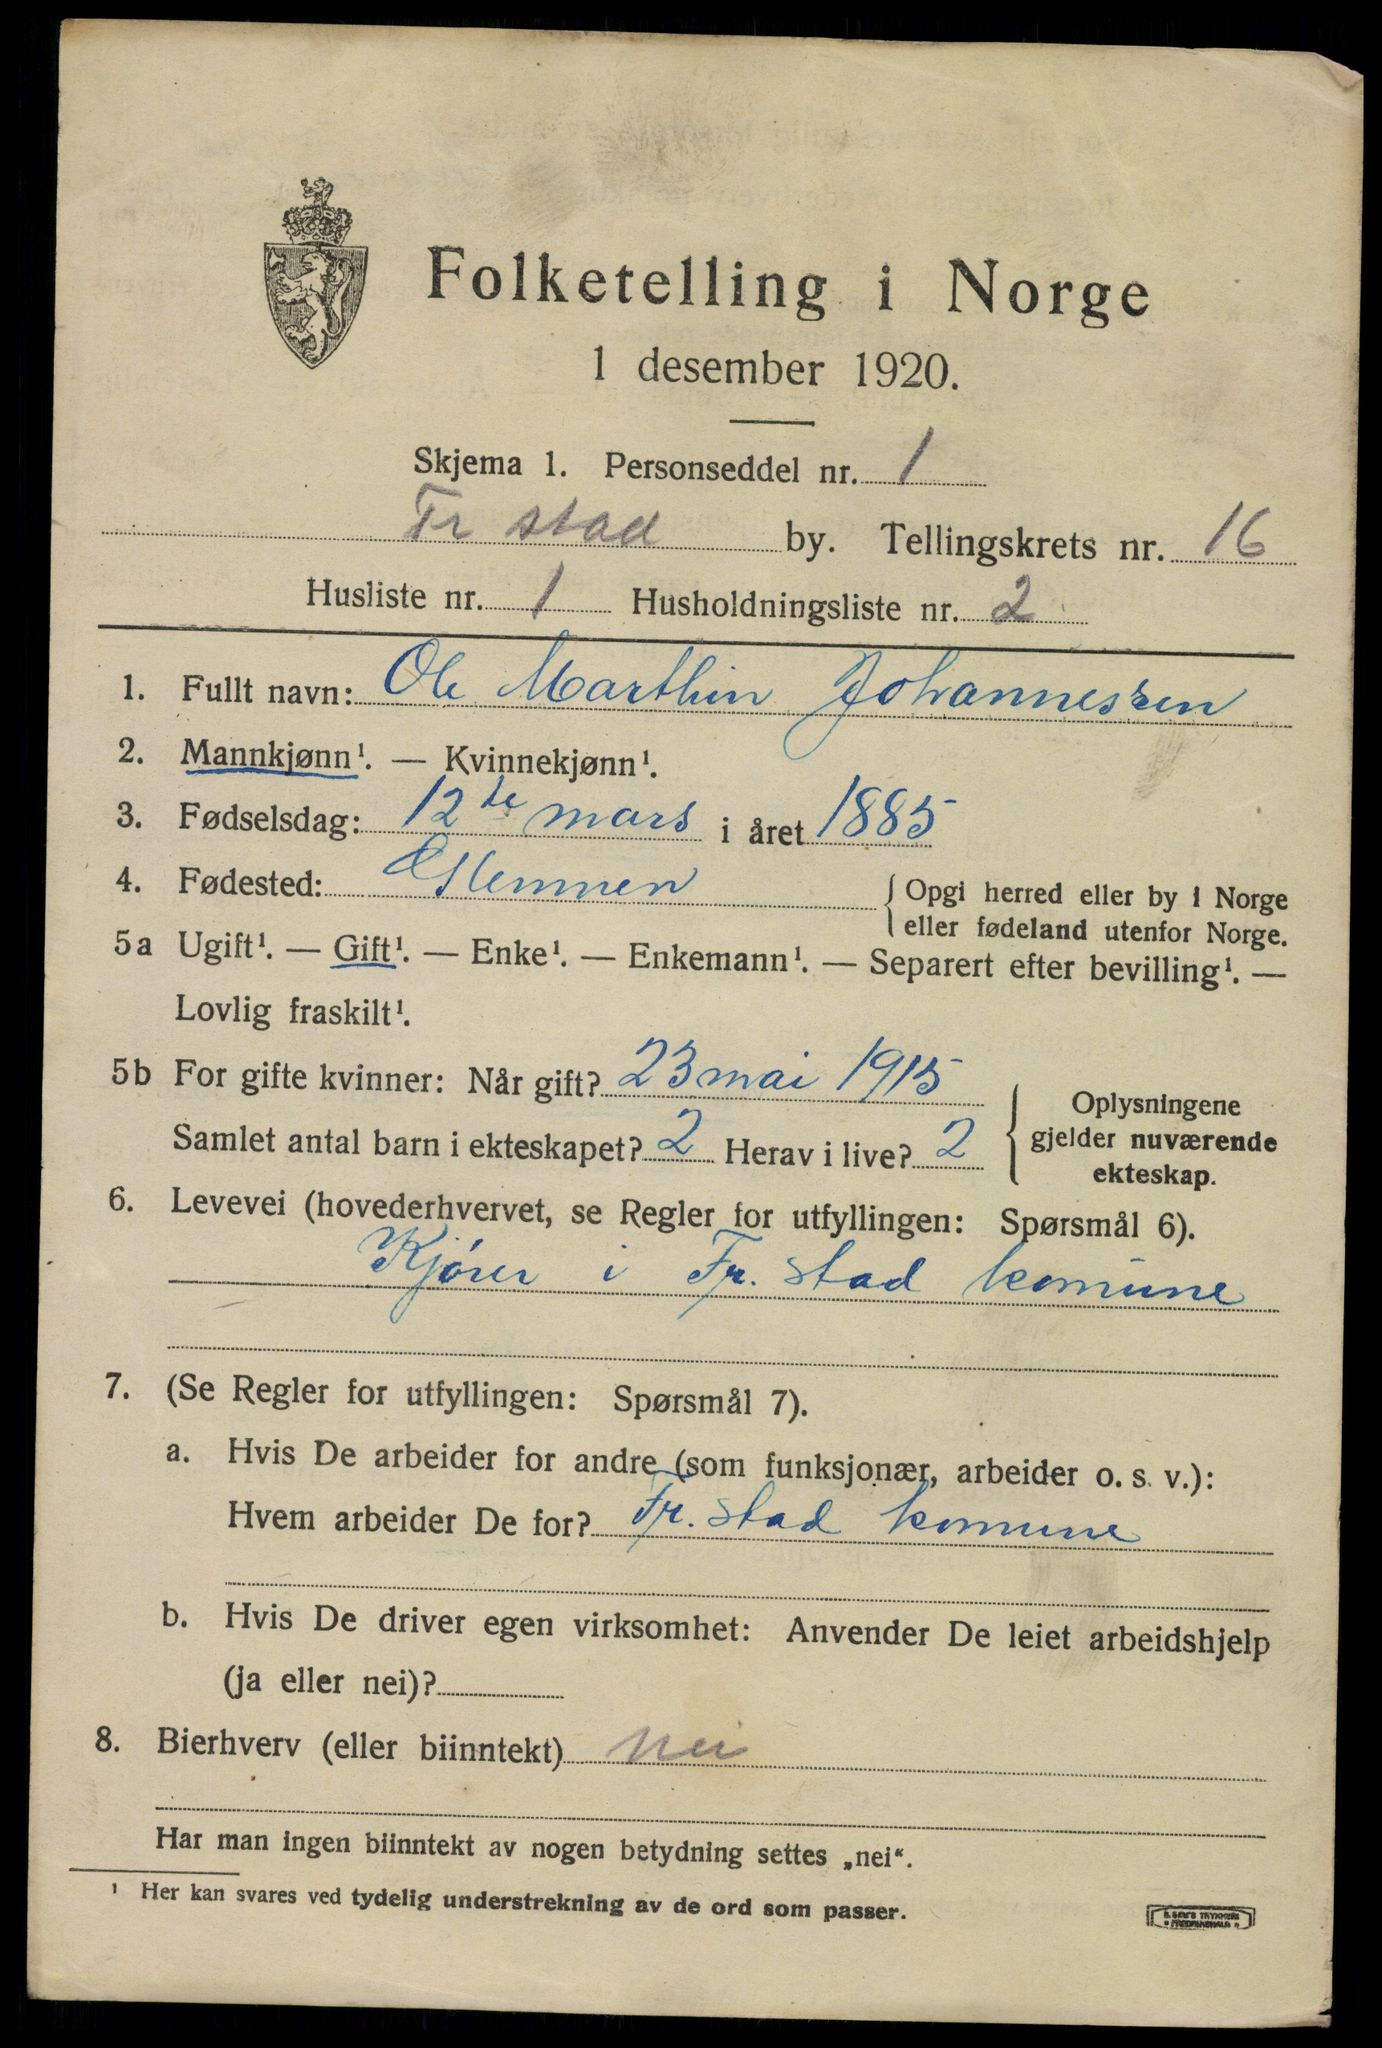 Folketelling i Norge
1 desember 1920.
Skjema 1. Personseddel nr. 1
Fr stad by. Tellingskrets nr. 16
Husliste nr. 1 Husholdningsliste nr. 2
1. Fullt navn: Ole Marthin Johannessen
2. Mannkjønn¹. — Kvinnekjønn¹.
3. Fødselsdag: 12te mars i året 1885
4. Fødested: Glemmen
{ Opgi herred eller by i Norge
eller fødeland utenfor Norge.
5a Ugift¹. — Gift¹. — Enke¹. — Enkemann¹. — Separert efter bevilling¹. —
Lovlig fraskilt¹.
5b For gifte kvinner: Når gift? 23 mai 1915
Samlet antal barn i ekteskapet? 2 Herav i live? 2
{ Oplysningene
gjelder nuværende
ekteskap.
6. Levevei (hovederhvervet, se Regler for utfyllingen: Spørsmål 6).
Kjører i Fr. stad komune
7. (Se Regler for utfyllingen: Spørsmål 7).
a. Hvis De arbeider for andre (som funksjonær, arbeider o. s. v.):
Hvem arbeider De for? Fr. stad komune
b. Hvis De driver egen virksomhet: Anvender De leiet arbeidshjelp
(ja eller nei)?
8. Bierhverv (eller biinntekt) nei
Har man ingen biinntekt av nogen betydning settes „nei“.
¹ Her kan svares ved tydelig understrekning av de ord som passer.